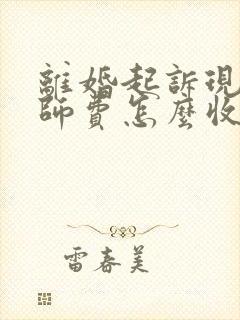 離婚起訴現
師費怎麼收
雷春美